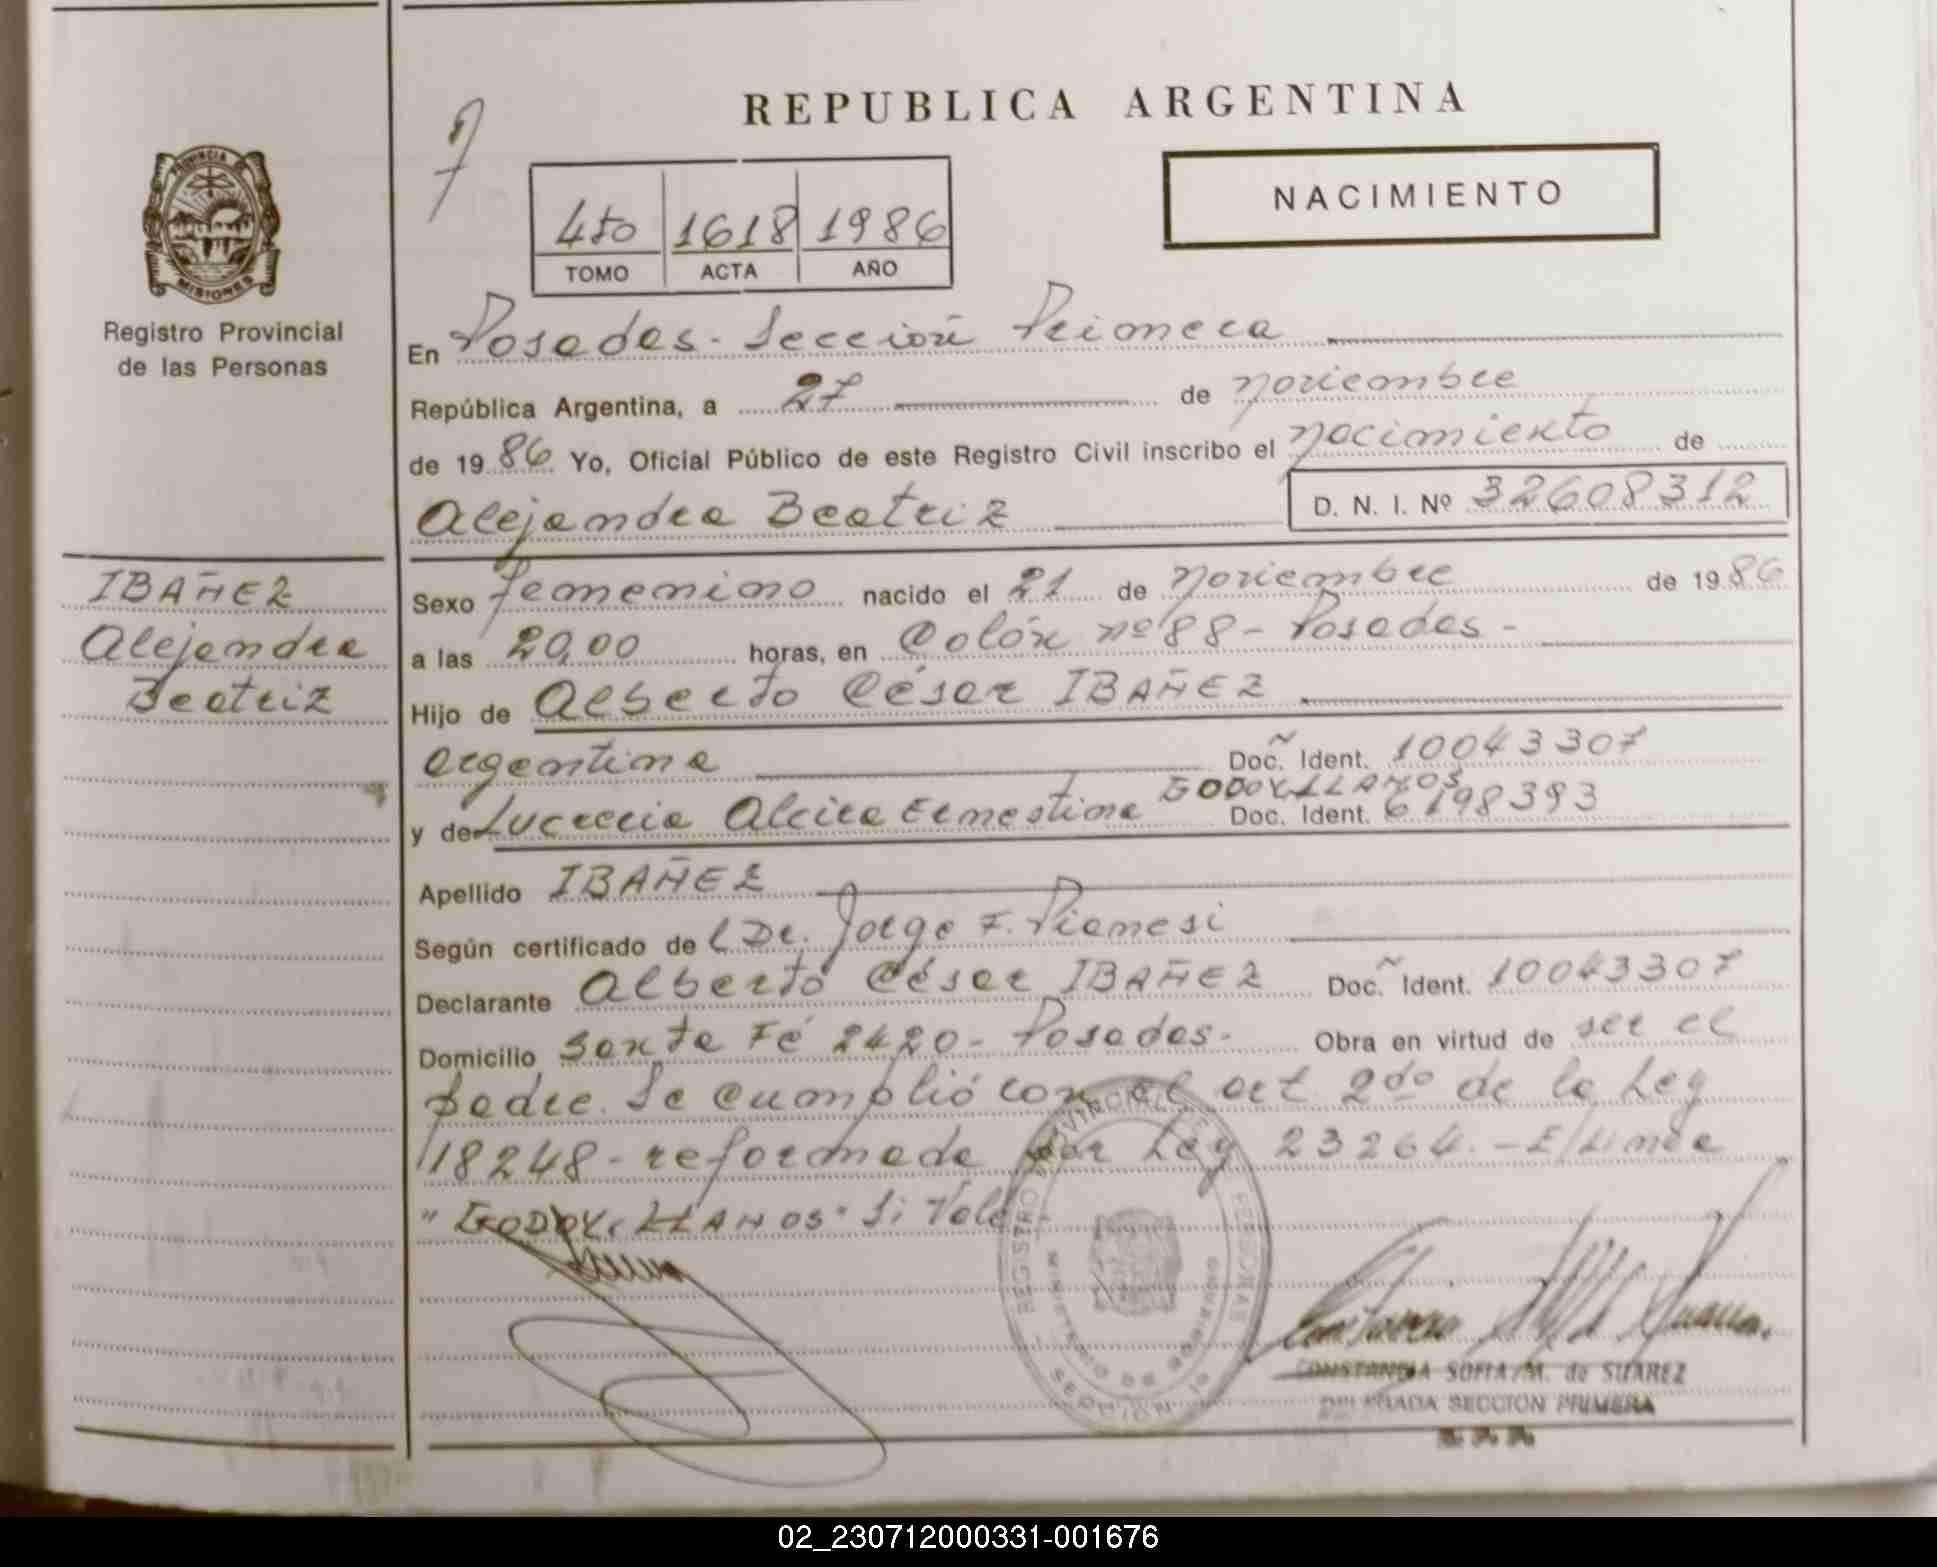 REPUBLICA ARGENTINA
NACIMIENTO
4to 1618 1986
TOMO ACTA AÑO
PROVINCIA
MISIONES
Registro Provincial
de las Personas
En Posadas - Sección Primera
República Argentina, a 27 de noviembre
de 1986 Yo, Oficial Público de este Registro Civil inscribo el nacimiento de
Alejandra Beatriz D. N. I. Nº 32608312
IBAÑEZ
Alejandra
Beatriz
Sexo femenino nacido el 21 de noviembre de 1986
a las 20,00 horas, en Colón nº 88 - Posadas -
Hijo de Alberto César IBAÑEZ
argentina Doc. Ident. 10043307
y de Lucrecia Alcira Ernestina GODOY LLANOS Doc. Ident. 6198393
Apellido IBAÑEZ
Según certificado de Dr. Jorge F. Piamesi
Declarante Alberto César IBAÑEZ Doc. Ident. 10043307
Domicilio Santa Fé 2420 - Posadas - Obra en virtud de ser el
padre. Se cumplió con el art 2do de la Ley
18248 - reformada por Ley 23264. - E/Linea
"GODOY LLANOS" Si Vale
REGISTRO PROVINCIAL DE LAS PERSONAS
MINISTERIO DE GOBIERNO
SECCION 1º
CONSTANCIA SOFIA M. de SUAREZ
SECCION PRIMERA
02_230712000331-001676